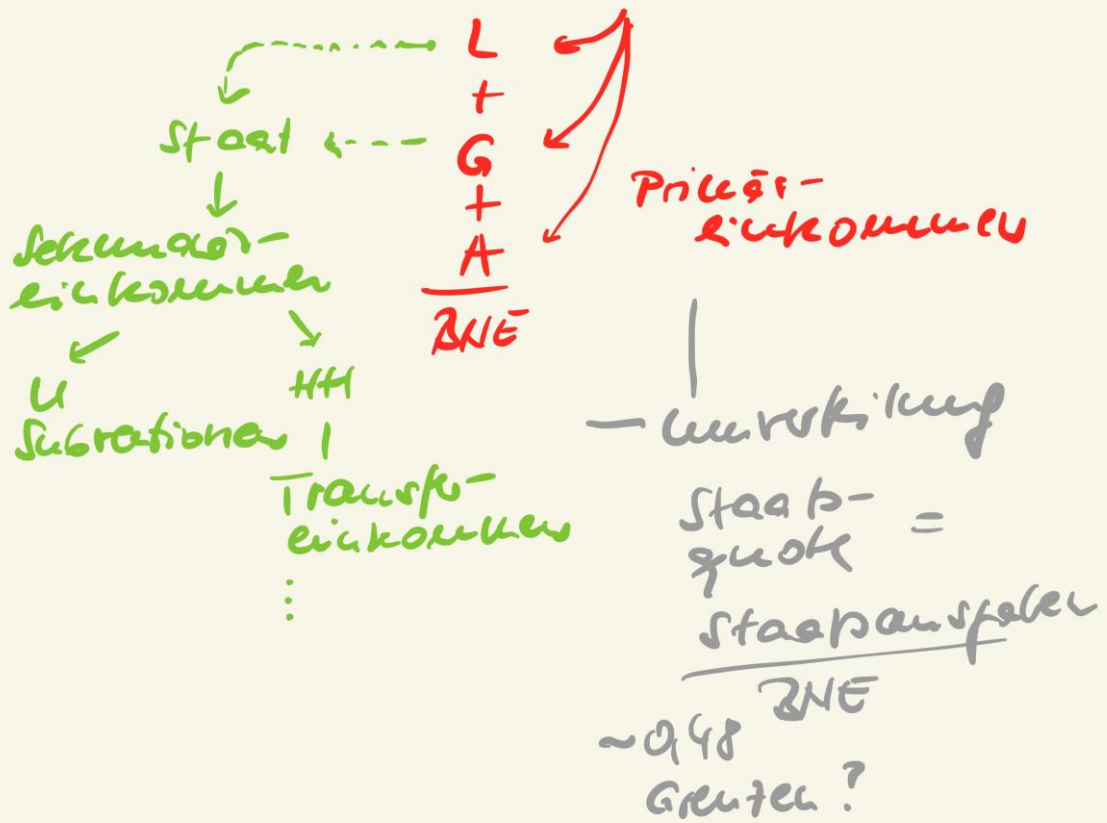 L
+
G
+
A
BNE
Primär-
einkommen
Staat
Sekundär-
einkommen
U
Subventionen
HH
Transfer-
einkommen
⋮
– Umverteilung
Staats-
quote =
Staatsausgaben
BNE
~0,48
Grenzen?